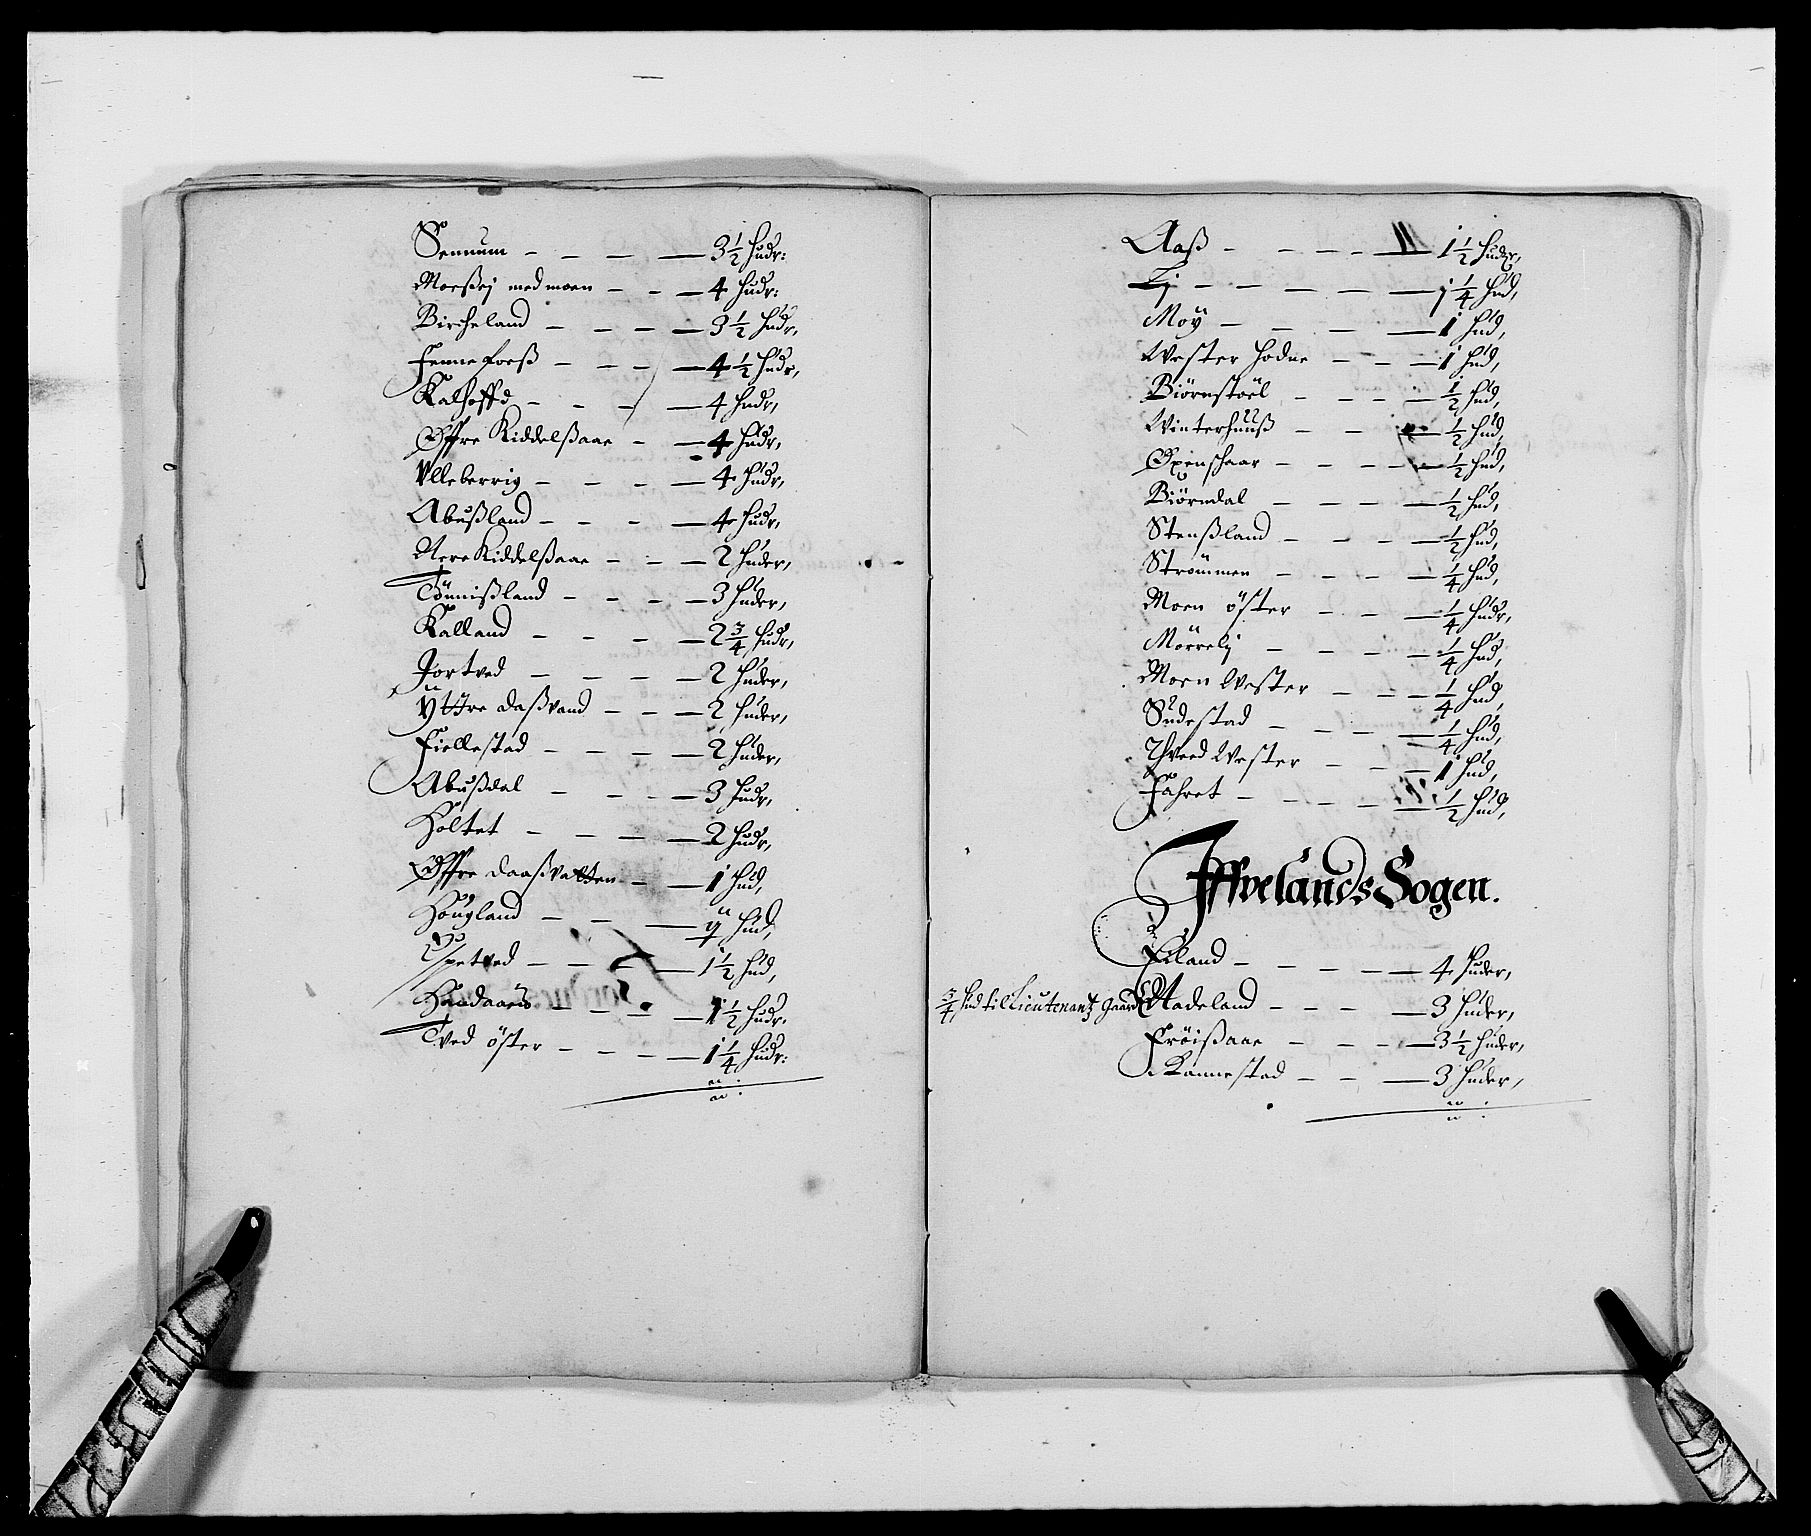 Sennum - - - - 3 1/2 hudr:
Moeßej med moen - - - 4 hudr:
Bircheland - - - - 3 1/2 hudr,
Fennefoeß - - - - 4 1/2 hudr,
Kalhoffd - - - - 4 hudr,
Øffre Kiddelßaae - - 4 hudr,
Ulleberrig - - - - 4 hudr,
Abußland - - - - 4 hudr,
Nere Kiddelßaae - - - 2 huder,
Tönnißland - - - - 3 huder,
Kalland - - - - 2 3/4 hudr,
Jortved - - - - 2 huder,
Ÿttre daßvand - - - 2 huder,
Fiellestad - - - - 2 huder,
Abußdal - - - - 3 hudr,
Holtet - - - - 2 hudr,
Øffre daaßvatten - - 1 hud,
Hougland - - - hud,
Uspetved - - - - 1 1/2 hud,
Handaaeis - - - - 1 1/2 hudr.
Tved öster - - - - 1 1/4 hudr:
Aaß - - - - 1 1/2 hudr,
Lj - - - - - j 1/4 hud,
Moÿ - - - - 1 hud,
Wester Hodne - - - 1 hud,
Biörnstöel - - - - 1/2 hud,
Winterhuuß - - - 1/2 hud,
Øxenschaar - - - - 1/2 hud,
Biörndal - - - - 1/2 hud,
Stenßland - - - - 1/2 hud,
Strömmen - - - - 1/4 hud,
Moen öster - - - 1/4 hudr,
Mörrelj - - - - 1/4 hud,
Moen Wester - - - 1/4 hud,
Sudestad - - - - 1/4 hud,
Thveed Wester - - - 1 hud,
Fahret - - - - 1/2 hud,
Iffvelands Sogen.
Eiland - - - - 4 huder,
3/4 hud til Lieutenantz Gaard Stadeland - - - 3 huder,
Fröißaae - - - 3 1/2 huder,
Kannestad - - - 3 huder,